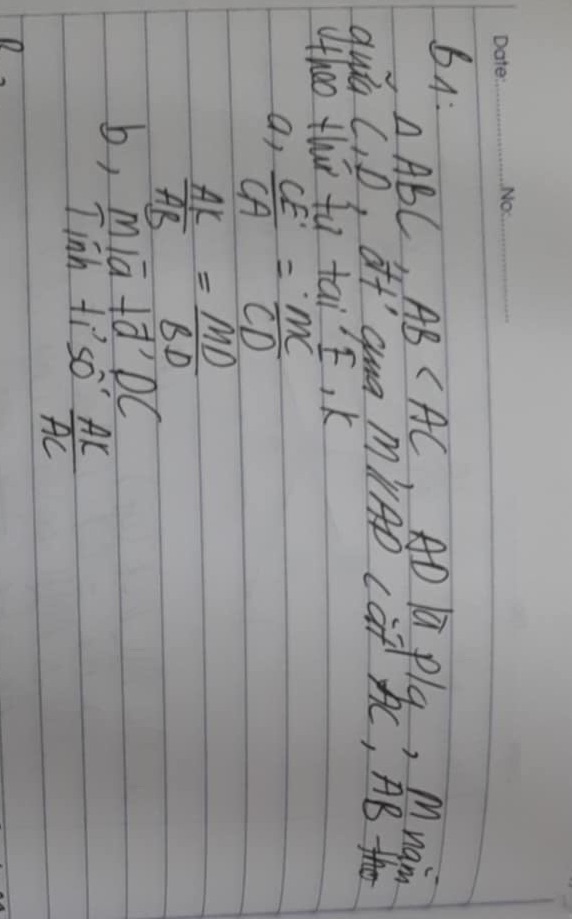 Date: No:
B1:
Δ ABC, AB < AC AD là p/g, M nằm
giữa C, D, đt' qua M // AD cắt AC, AB
theo thứ tự tại E, K
a, CE/CA = MC/CD
AK/AB = MD/BD
b, M là tđ' DC
Tính tỉ số AK/AC